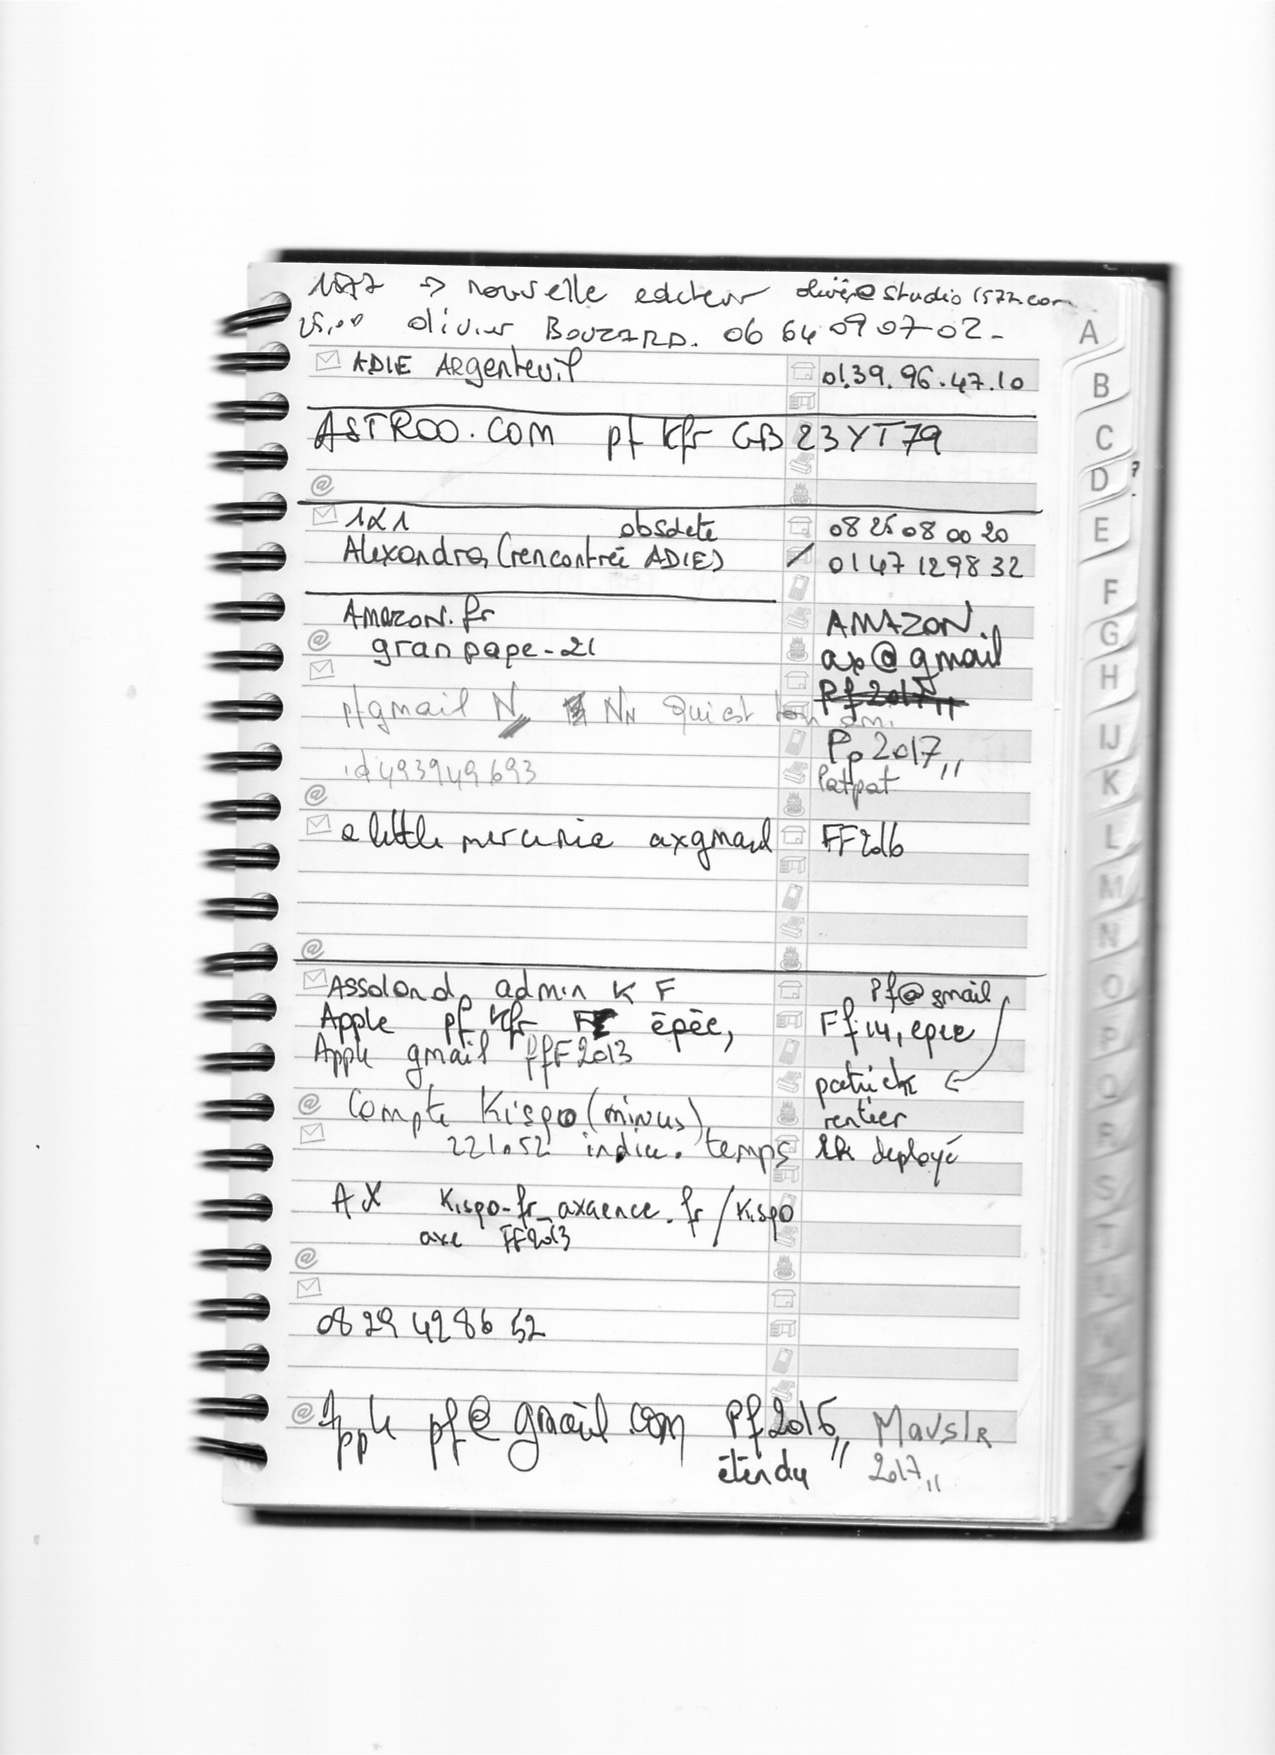 1577 → nouvelle editeur olivier@studio1577.com
25,00 olivier BOUZARD. 06 64 09 07 02 -
ADIE Argenteuil 01.39.96.47.10
ASTROO.COM pf kfr GB 23YT79
1&1 obsolete 08 25 08 00 20
Alexandra (rencontrée ADIE) 01 47 12 98 32
Amazon.fr AMAZON.
granpape-21 ax@gmail
Pf2017,,
pfgmail N, NN Qui est ton ami
Pp2017,,
id493949693 Patpat
a little mercerie axgmail FF2016
Assolondo admin K F Pf@gmail
Apple pf kfr épée, Ff14, epee
Apple gmail PfF2013
patrick
Compte Kispo (minus) rentier
221.52 indice. temps deployé
AX Kispo-fr_axaence.fr/Kispo
axe FF2013
08 29 42 86 52
Apple pf@gmail.com Pf2016,,
étendu 2017,,
A
B
C
D
E
F
G
H
IJ
K
L
M
N
O
P
Q
R
S
T
U
V
W
X